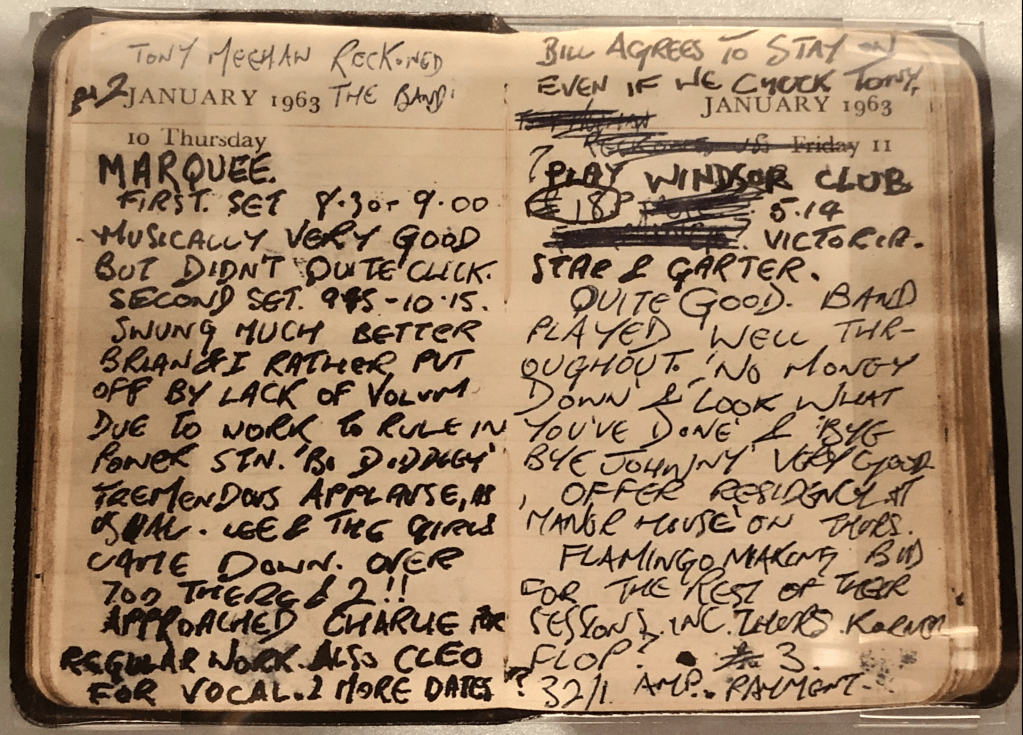 TONY MEEHAN RECKONED
JANUARY 1963 THE BAND.
10 Thursday
MARQUEE.
FIRST. SET 8.30 - 9.00
MUSICALLY VERY GOOD
BUT DIDN'T QUITE CLICK.
SECOND SET. 9.45 - 10.15.
SWUNG MUCH BETTER
BRIAN & I RATHER PUT
OFF BY LACK OF VOLUM
DUE TO WORK TO RULE IN
POWER STN. 'BO DIDDLEY'
TREMENDOUS APPLAUSE, AS
USUAL. LEE & THE GIRLS
CAME DOWN. OVER
700 THERE £2!!
APPROACHED CHARLIE FOR
REGULAR WORK. ALSO CLEO
FOR VOCAL. 2 MORE DATES ?
BILL AGREES TO STAY ON
EVEN IF WE CHUCK TONY,
JANUARY 1963
Friday 11
? PLAY WINDSOR CLUB
£18? 5.14
VICTORIA.
STAR & GARTER.
QUITE GOOD. BAND
PLAYED WELL THR-
OUGHOUT. 'NO MONEY
DOWN' & 'LOOK WHAT
YOU'VE DONE' & 'BYE
BYE JOHNNY' VERY GOOD
, OFFER RESIDENCY AT
'MANOR HOUSE' ON THURS.
FLAMINGO MAKING BID
FOR THE REST OF THEIR
SESSIONS. INC. THURS. KORNER
FLOP? 3.
32/1 AMP. PAYMENT.